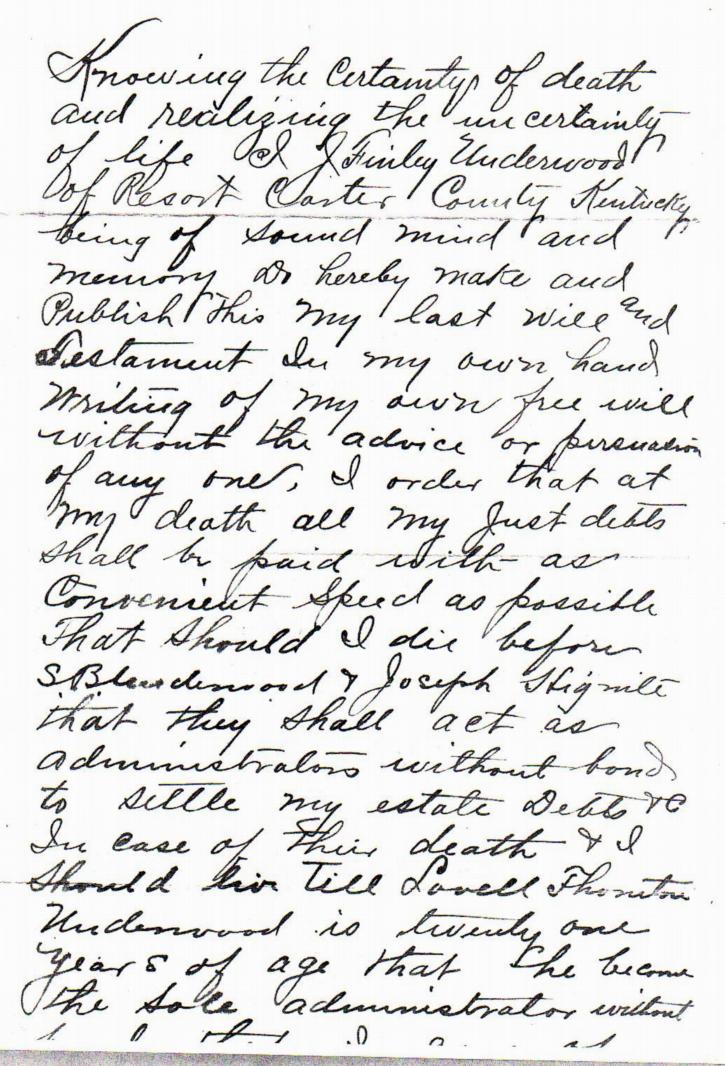 Knowing the Certainty of death
and realizing the uncertainty
of life I J Finley Underwood
of Resort Carter County Kentucky
being of sound mind and
memory Do hereby make and
Publish This my last will and
Testament In my own hand
Writing of my own free will
without the advice or persuasion
of any one, I order that at
my death all my Just debts
shall be paid with as
Convenient Speed as possible
That should I die before
S B Underwood & Joseph Hignite
that they shall act as
administrators without bond
to settle my estate Debts &C
In case of Their death & I
should live Till Lovell Thornton
Underwood is twenty one
years of age that he become
the sole administrator without